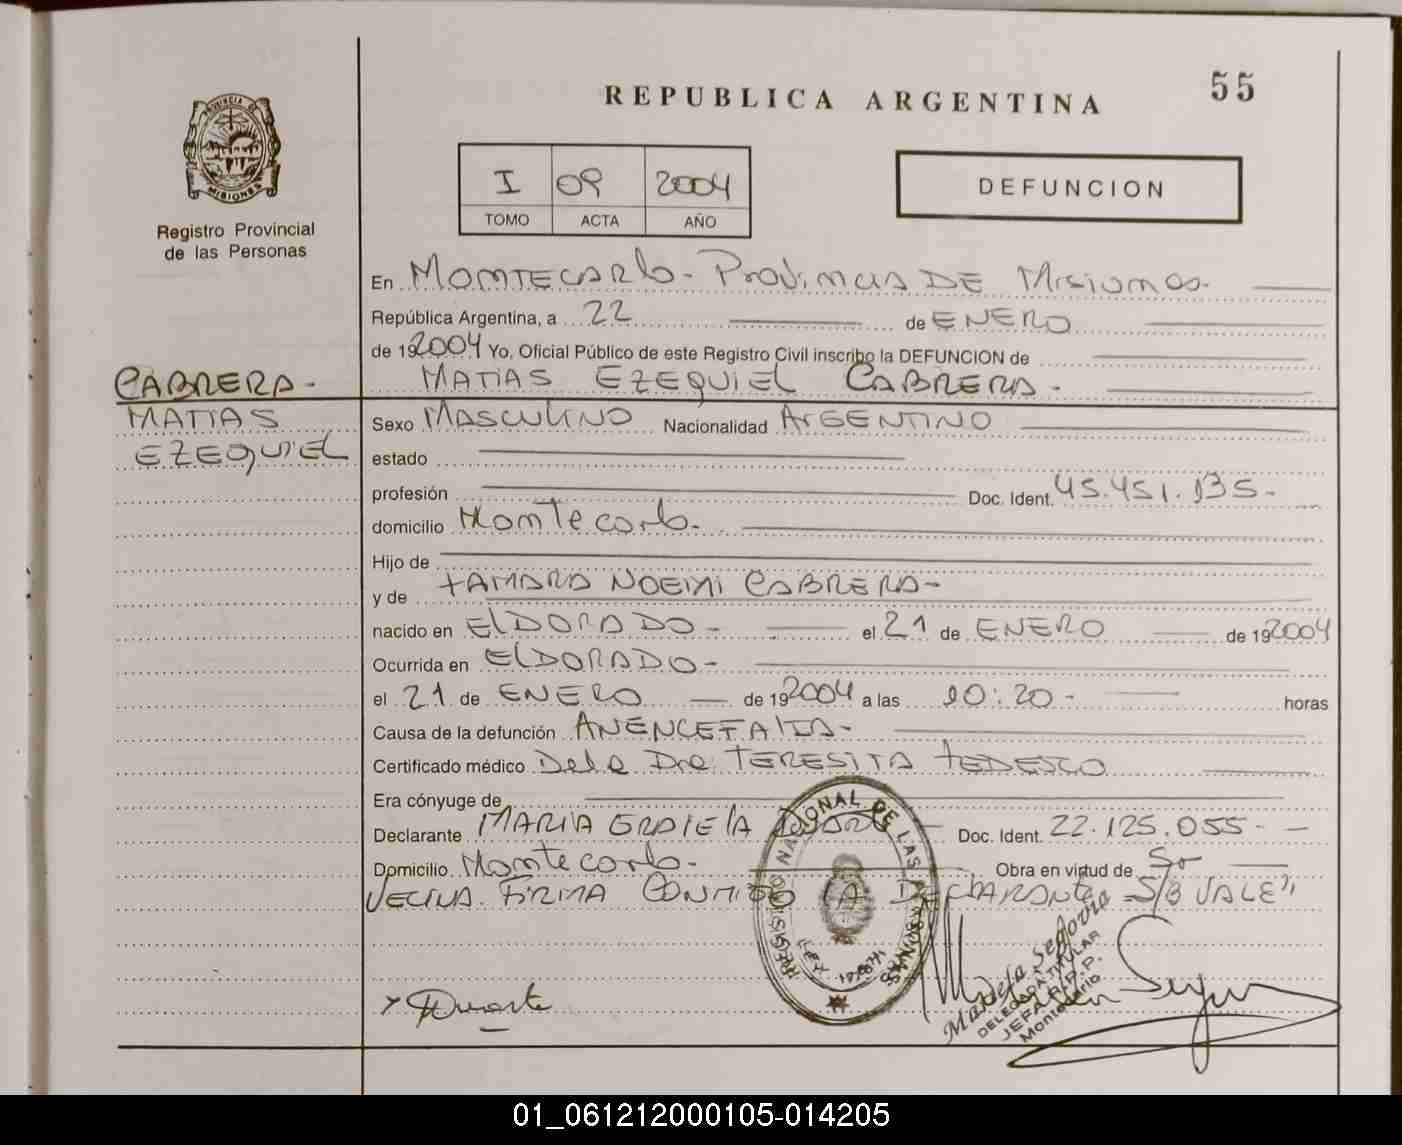 REPUBLICA ARGENTINA
55
PROVINCIA DE
MISIONES
Registro Provincial
de las Personas
I 09 2004
TOMO ACTA AÑO
DEFUNCION
En Montecarlo - Provincia DE Misiones.
República Argentina, a 22 de ENERO
de 192004 Yo, Oficial Público de este Registro Civil inscribo la DEFUNCION de
MATIAS EZEQUIEL CABRERA -
CABRERA -
MATIAS
EZEQUIEL
Sexo MASCULINO Nacionalidad ArGENTINO
estado
profesión Doc. Ident. 45.451.135-
domicilio Montecarlo -
Hijo de
y de TAMARA NOEMI CABRERA -
nacido en ElDORADO - el 21 de ENERO de 192004
Ocurrida en ElDORADO -
el 21 de ENERO de 192004 a las 10:20 - horas
Causa de la defunción ANENCEFALIA -
Certificado médico De la Dra. TERESITA TEDESCO
Era cónyuge de
Declarante MARIA GRACIELA Doc. Ident. 22.125.055 -
Domicilio Montecarlo - Obra en virtud de Ser
VECINA. FIRMA CONMIGO LA DEClARANTE S/B VALE"
REGISTRO NACIONAL DE LAS PERSONAS
LEY
Duarte
Mariela Segovia
DELEGADA TITULAR
JEFA R.P.P.
Montecarlo
01_061212000105-014205